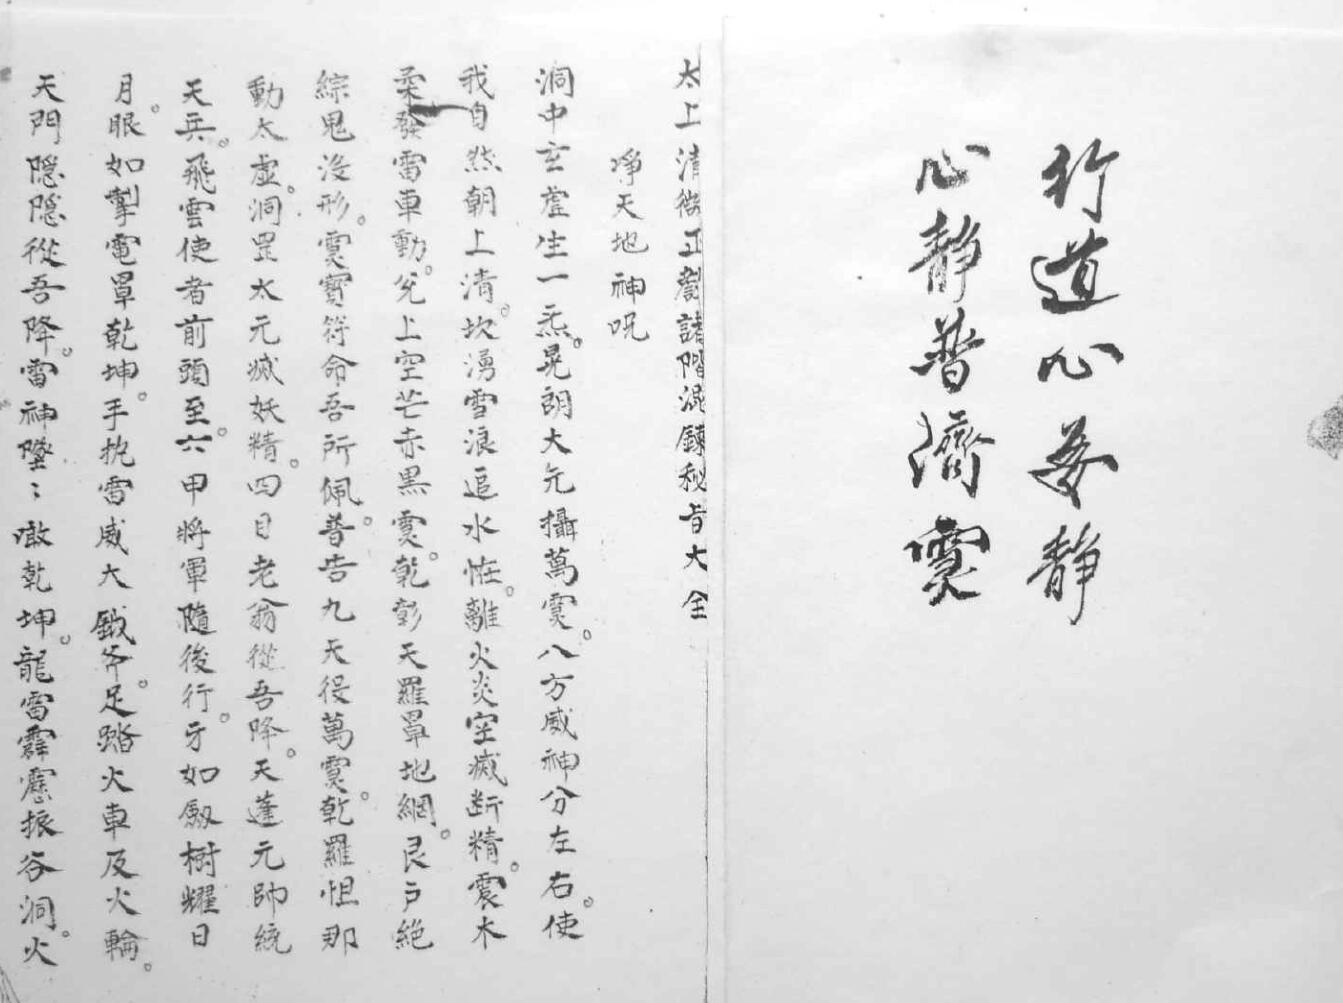 行道心要靜
心靜普濟霛
太上清微正劑諸階混鍊秘旨大全
淨天地神呪
洞中玄虛生一炁。晃朗大元攝萬霛。八方威神分左右。使
我自然朝上清。坎湧雪浪追水怪。離火炎空滅断精。震木
柔發雷車動。兌上空芒赤黑霛。乾彰天羅罩地網。艮户絕
綜鬼沒形。霛寶符命吾所佩。普告九天役萬霛。乾羅怛那
動太虛。洞罡太元滅妖精。四目老翁從吾降。天蓬元帥統
天兵。飛雲使者前頭至。六甲將軍隨後行。牙如劔樹耀日
月。眼如掣電罩乾坤。手执雷威大鉞斧。足踏火車及火輪。
天門隱隱從吾降。雷神墜〻澈乾坤。龍雷霹靂振谷洞。火